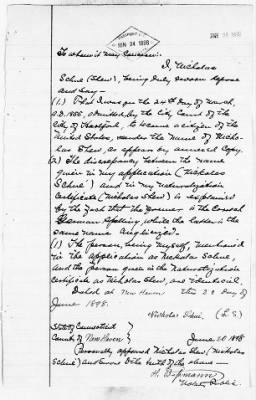 JUN 24 1898
To whom it may Concern:
I, Nicholas
Schue (Shew), being duly sworn depose
and say—
(1.) That I was on the 24th day of March,
A.D. 1888, admitted, by the City Court of the
City of Hartford, to become a citizen of the
United States, under the name of Nicho-
las Shew, as appears by annexed copy.
(2) The discrepancy between the name
given in my application (Nicholas
Schue) and in my Naturalization
Certificate (Nicholas Shew) is explained
by the fact that the former is the correct
German spelling while the latter is the
same name Anglicized.
(1) The person, being myself, mentioned
in the application as Nicholas Schue,
and the person given in the Naturalization
certificate as Nicholas Shew, are identical.
Dated at New Haven this 20 day of
June 1898.
Nicholas Schue (L.S.)
State of Connecticut
County of New Haven June 20 1898
Personally appeared Nicholas Shew (Nicholas
Schue) and swore to the truth of the above—
Notary Public